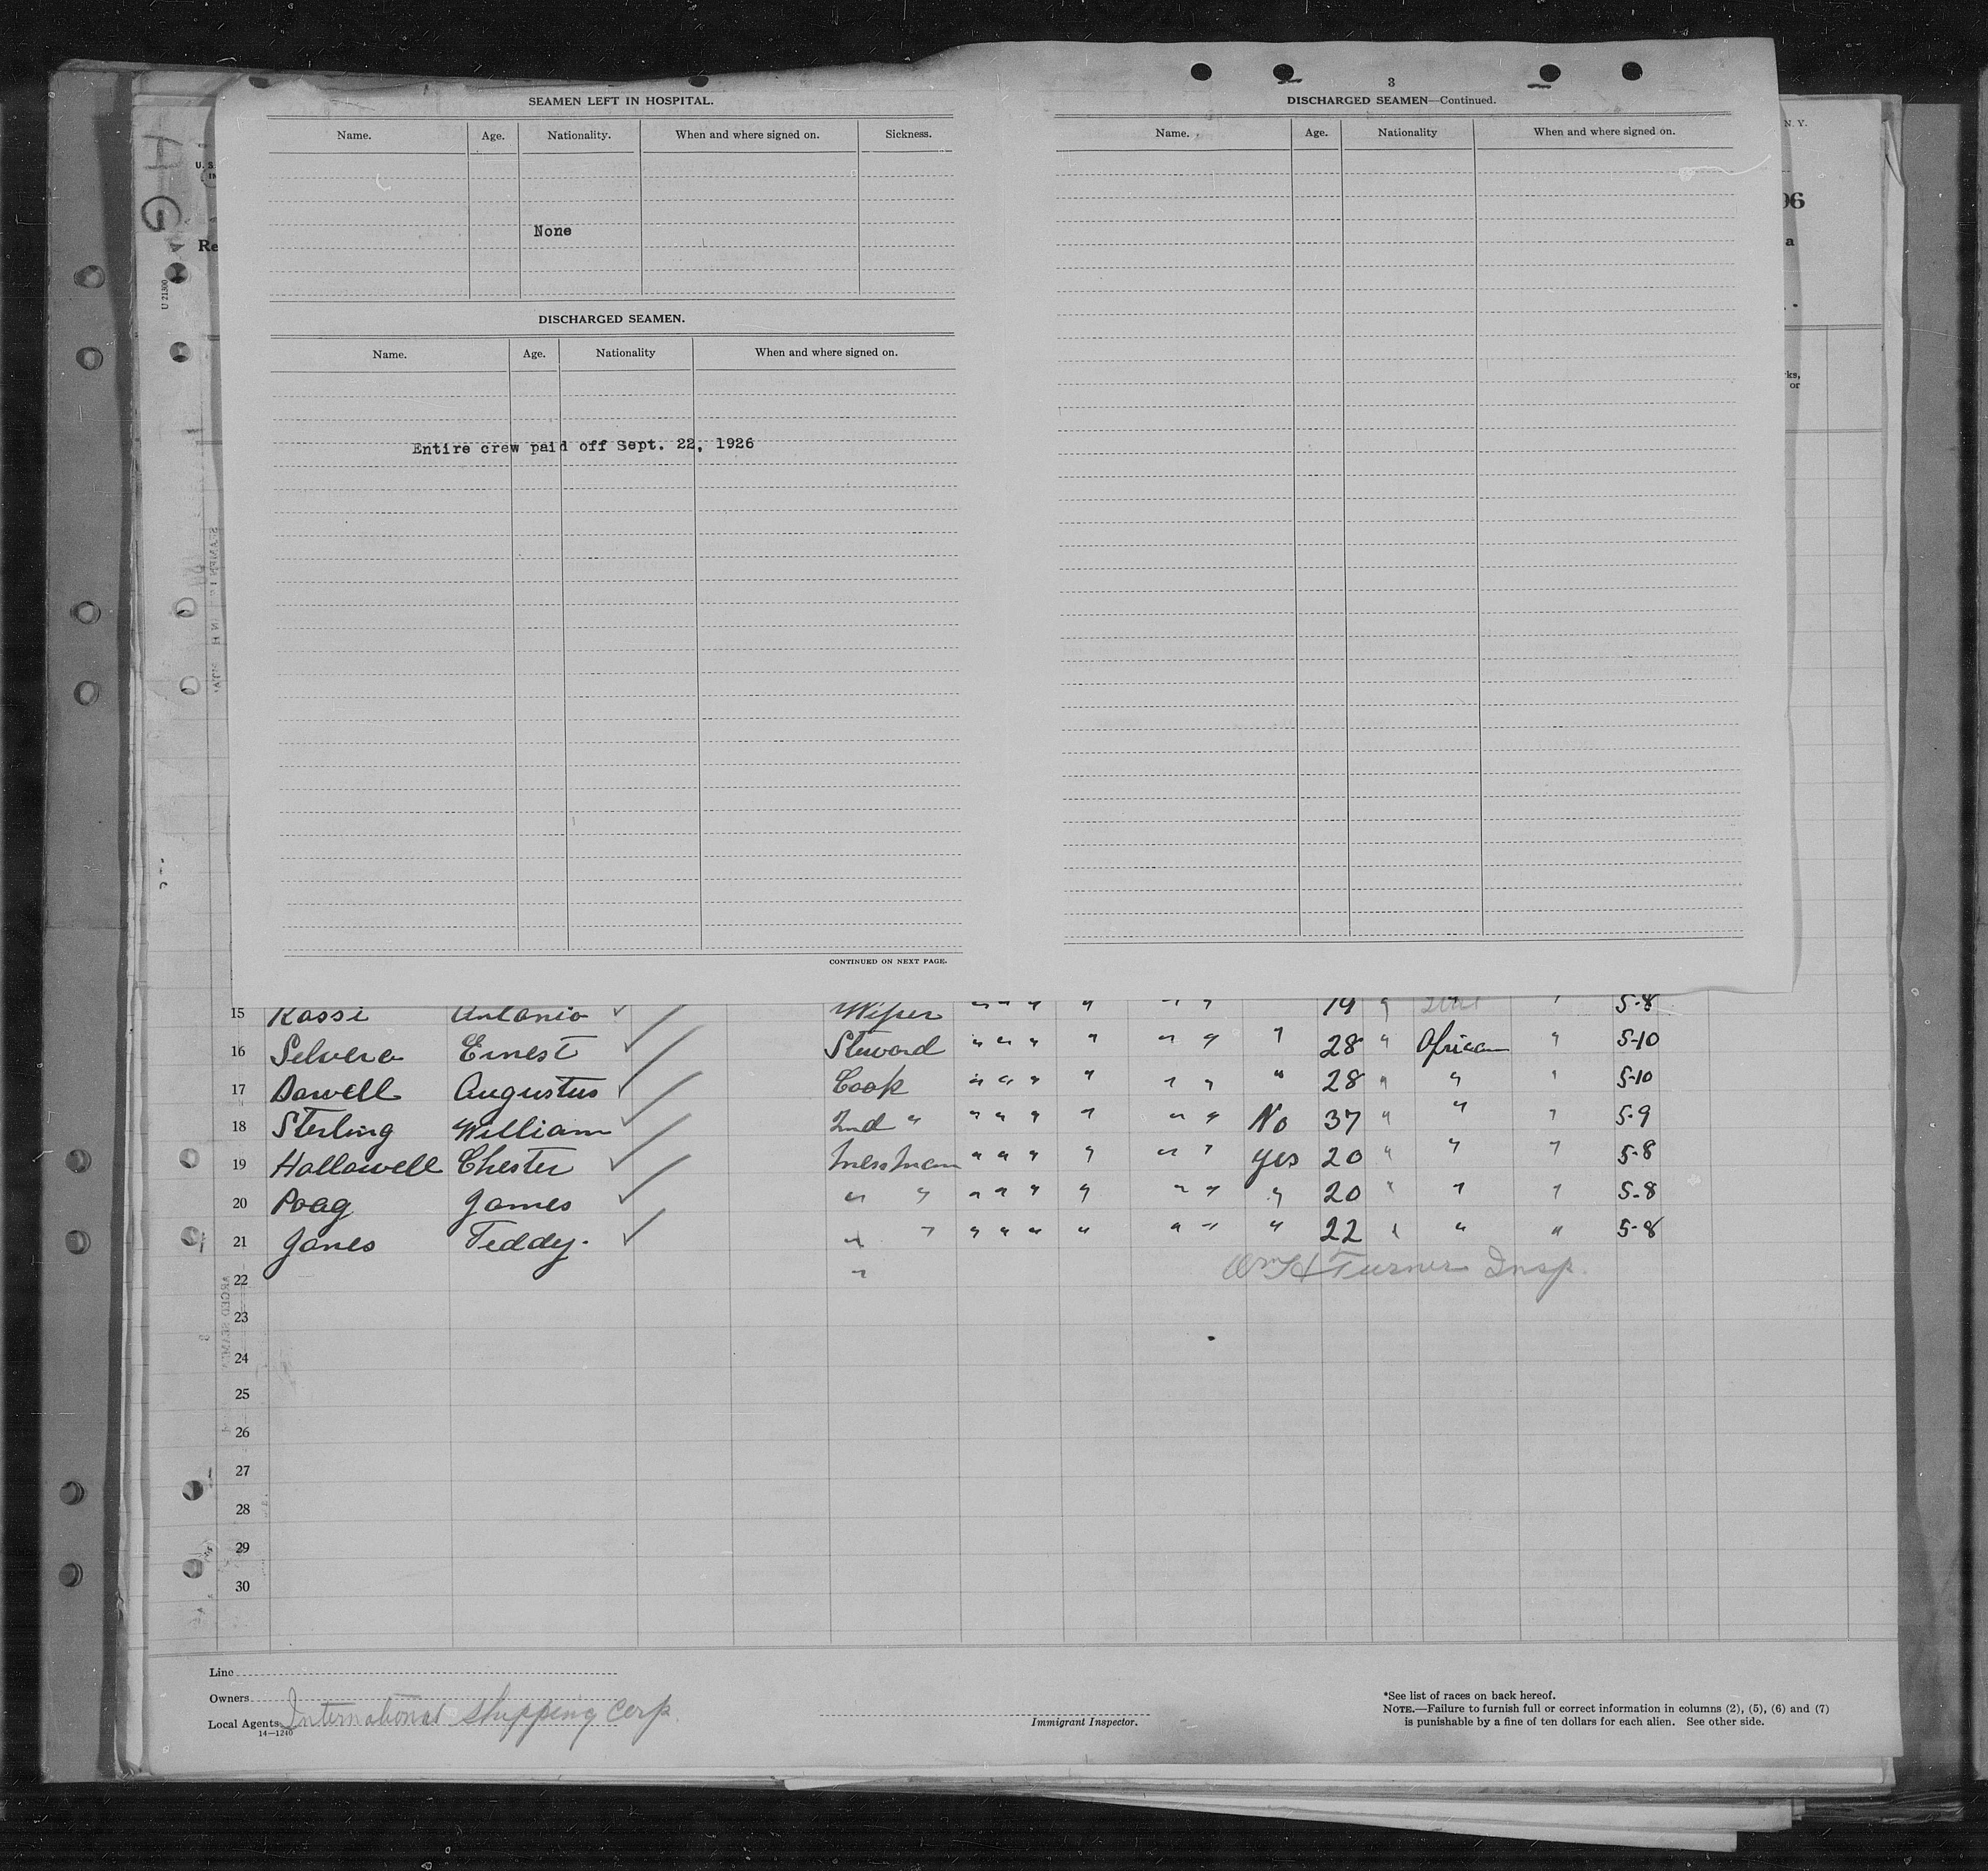 SEAMEN LEFT IN HOSPITAL.
Name. Age. Nationality. When and where signed on. Sickness.
None
DISCHARGED SEAMEN.
Name. Age. Nationality When and where signed on.
Entire crew paid off Sept. 22, 1926
CONTINUED ON NEXT PAGE.
3
DISCHARGED SEAMEN—Continued.
Name. Age. Nationality When and where signed on.
N. Y.
U. S.
Re
U 21300
15 Rossi Antonio Wiper " " " " " " 19 " " 5-8
16 Selvera Ernest Steward " " " " " " " 28 " African " 5-10
17 Dowell Augustus Cook " " " " " " " 28 " " " 5-10
18 Sterling William 2nd " " " " " " " No 37 " " " 5-9
19 Hallowell Chester Messman " " " " " " yes 20 " " " 5-8
20 Poag James " " " " " " " " " 20 " " " 5-8
21 Jones Teddy. " " " " " " " " " 22 " " " 5-8
22 " Wm H Turner Insp.
23
24
25
26
27
28
29
30
Line
Owners
Local Agents International Shipping Corp.
14—1240
Immigrant Inspector.
*See list of races on back hereof.
NOTE.—Failure to furnish full or correct information in columns (2), (5), (6) and (7)
is punishable by a fine of ten dollars for each alien. See other side.